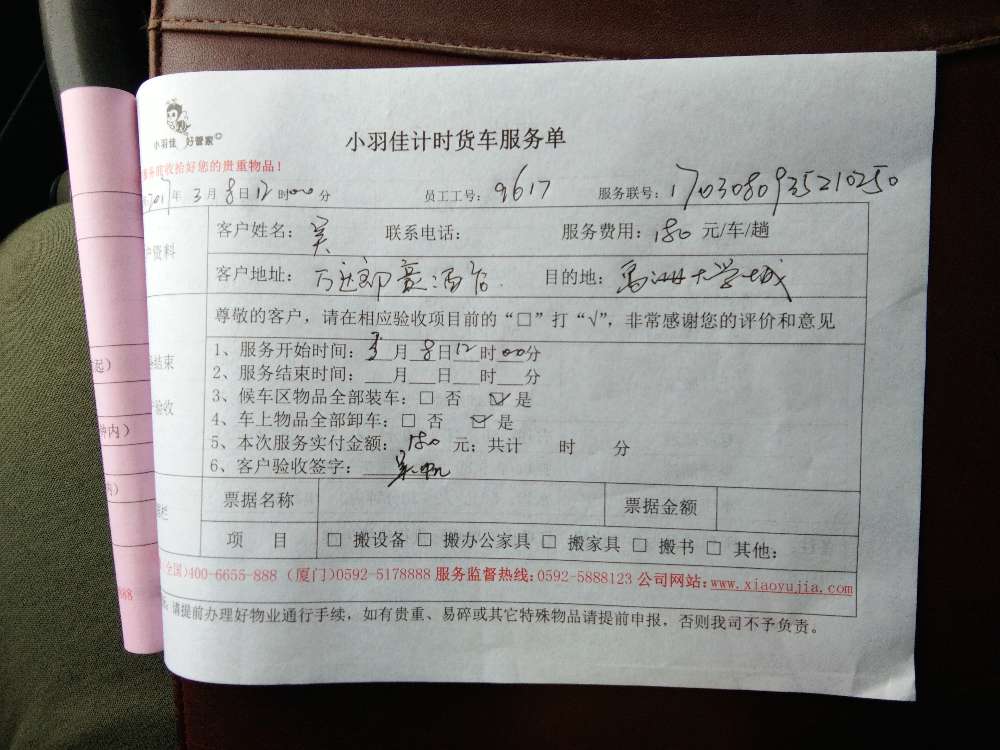 小羽佳 好管家
小羽佳计时货车服务单
收拾好您的贵重物品！
2017年 3月 8日 12时00分 员工工号： 9617 服务联号：1703080935210250
户资料 客户姓名：吴 联系电话： 服务费用：180 元/车/趟
客户地址： 万达 豪 酒店 目的地：禹洲大学城
尊敬的客户，请在相应验收项目前的“□”打“√”，非常感谢您的评价和意见
结束
验收
1、服务开始时间：3月 8日12时00分
2、服务结束时间：___月___日___时___分
3、候车区物品全部装车：□ 否 ☑ 是
4、车上物品全部卸车：□ 否 ☑ 是
5、本次服务实付金额：180 元；共计 时 分
6、客户验收签字：
票据名称 票据金额
项 目 □ 搬设备 □ 搬办公家具 □ 搬家具 □ 搬书 □ 其他：
全国)400-6655-888 (厦门)0592-5178888 服务监督热线:0592-5888123 公司网站:www.xiaoyujia.com
请提前办理好物业通行手续，如有贵重、易碎或其它特殊物品请提前申报，否则我司不予负责。
起）
钟内）